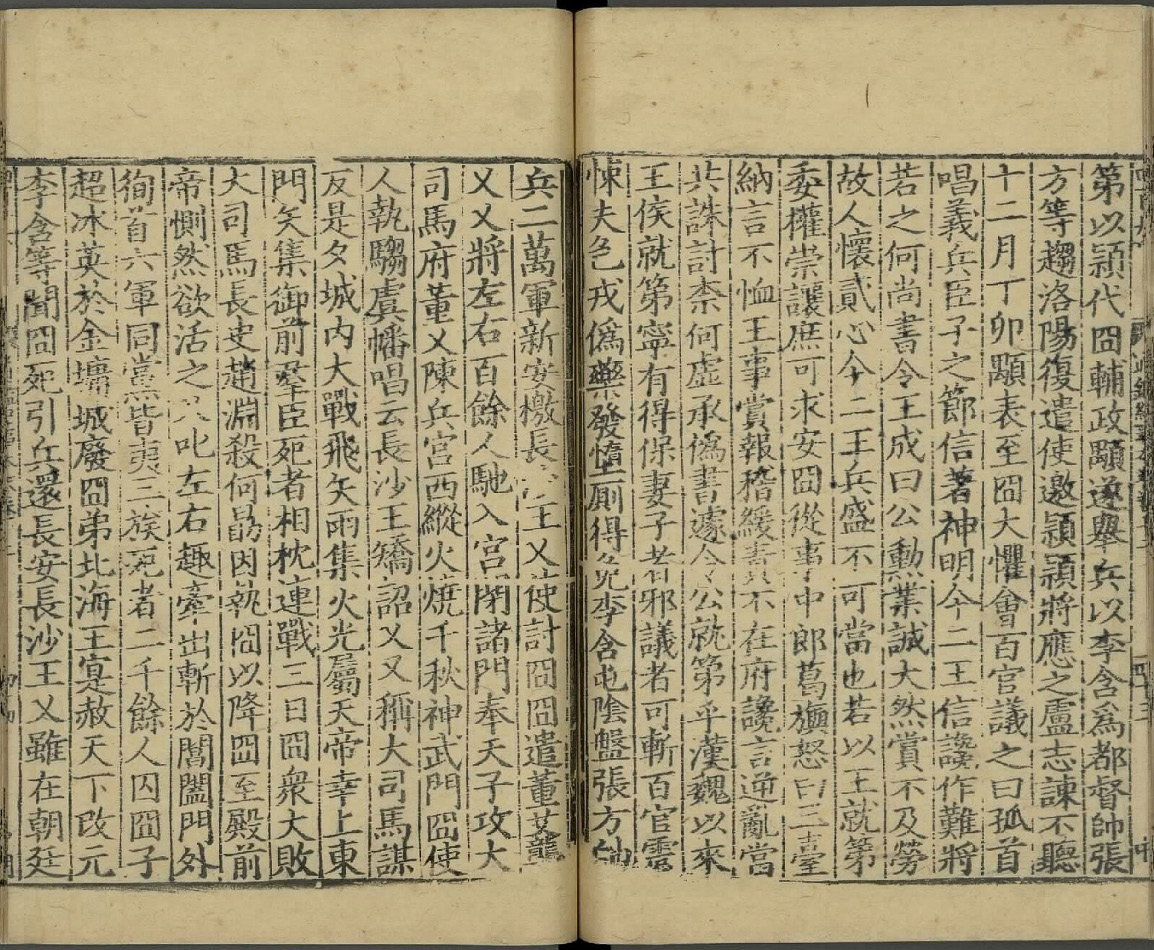 第以穎代冏輔政顒遂舉兵以李含爲都督帥張
方等趨洛陽復遣使邀穎穎將應之盧志諫不聽
十二月丁卯顒表至冏大懼會百官議之曰孤首
唱義兵臣子之節信著神明今二王信讒作難將
若之何尚書令王戎曰公勲業誠大然賞不及勞
故人懷貳心今二王兵盛不可當也若以王就第
委權崇讓庶可求安冏從事中郎葛旟怒曰三臺
納言不恤王事賞報稽緩責不在府讒言逆亂當
共誅討柰何虛承僞書遽令公就第乎漢魏以來
王侯就第寧有得保妻子者邪議者可斬百官震
悚失色戎僞藥發墮厠得免李含屯陰盤張方帥
兵二萬軍新安檄長沙王乂使討冏冏遣董艾襲
乂乂將左右百餘人馳入宮閉諸門奉天子攻大
司馬府董乂陳兵宮西縱火燒千秋神武門冏使
人執騶虞幡唱云長沙王矯詔乂又稱大司馬謀
反是夕城内大戰飛矢雨集火光屬天帝幸上東
門矢集御前羣臣死者相枕連戰三日冏衆大敗
大司馬長史趙淵殺何勗因執冏以降冏至殿前
帝惻然欲活之乂叱左右趣牽出斬於閶闔門外
徇首六軍同黨皆夷三族死者二千餘人囚冏子
超冰英於金墉城廢冏弟北海王寔赦天下改元
李含等聞冏死引兵還長安長沙王乂雖在朝廷